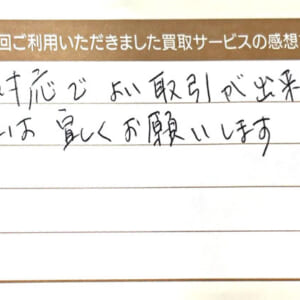 回ご利用いただきました買取サービスの感想
対応でよい取引が出来
は宜しくお願いします